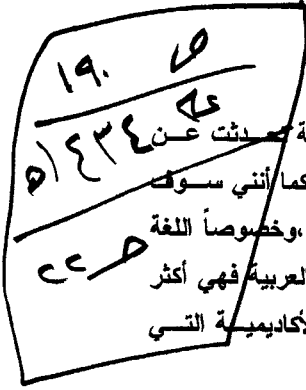 ص ١٩٠
١٤٣٤ه
ة تحدثت عن
كما أنني سوف
،وخصوصاً اللغة
ص ٢٢
لعربية فهي أكثر
لأكاديمية التي